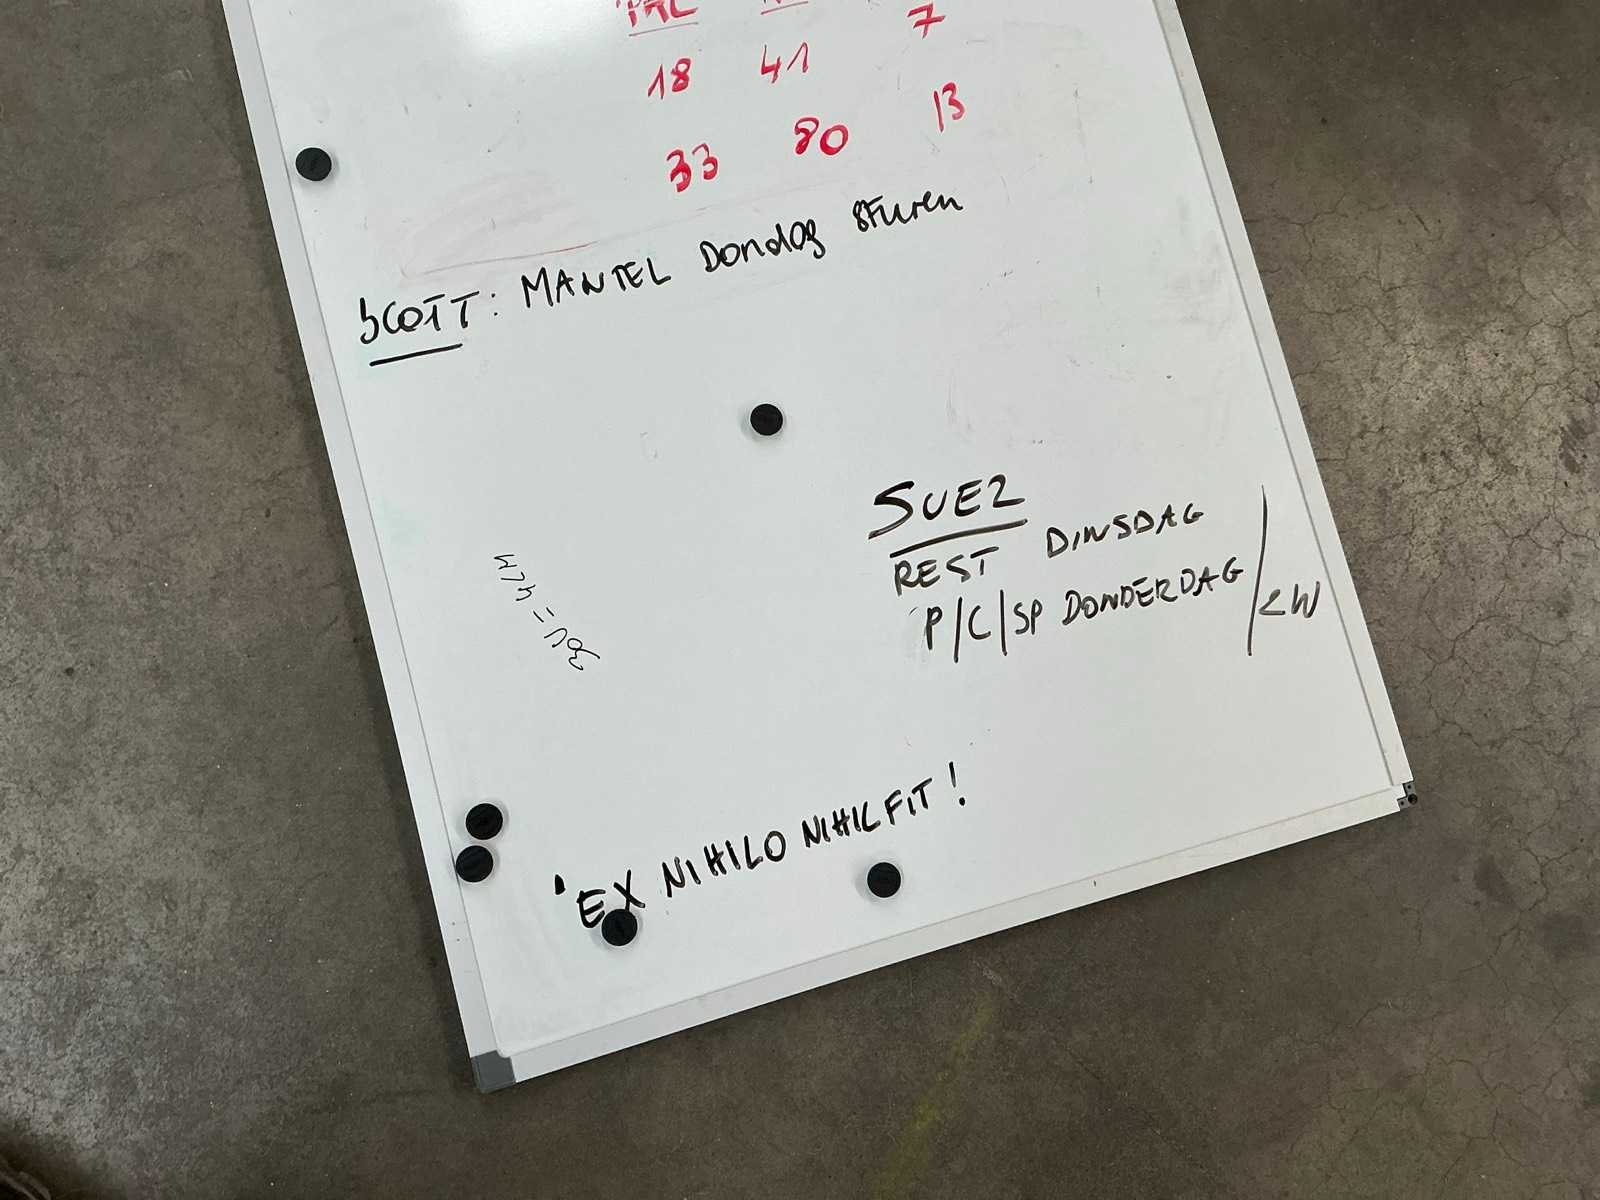 PAL
18 41 7
33 80 13
SCOTT: MANTEL Dondag sturen
SUEZ
REST DINSDAG
P/C/SP DONDERDAG / <W
30U = 4LM
'EX NIHILO NIHIL FIT!